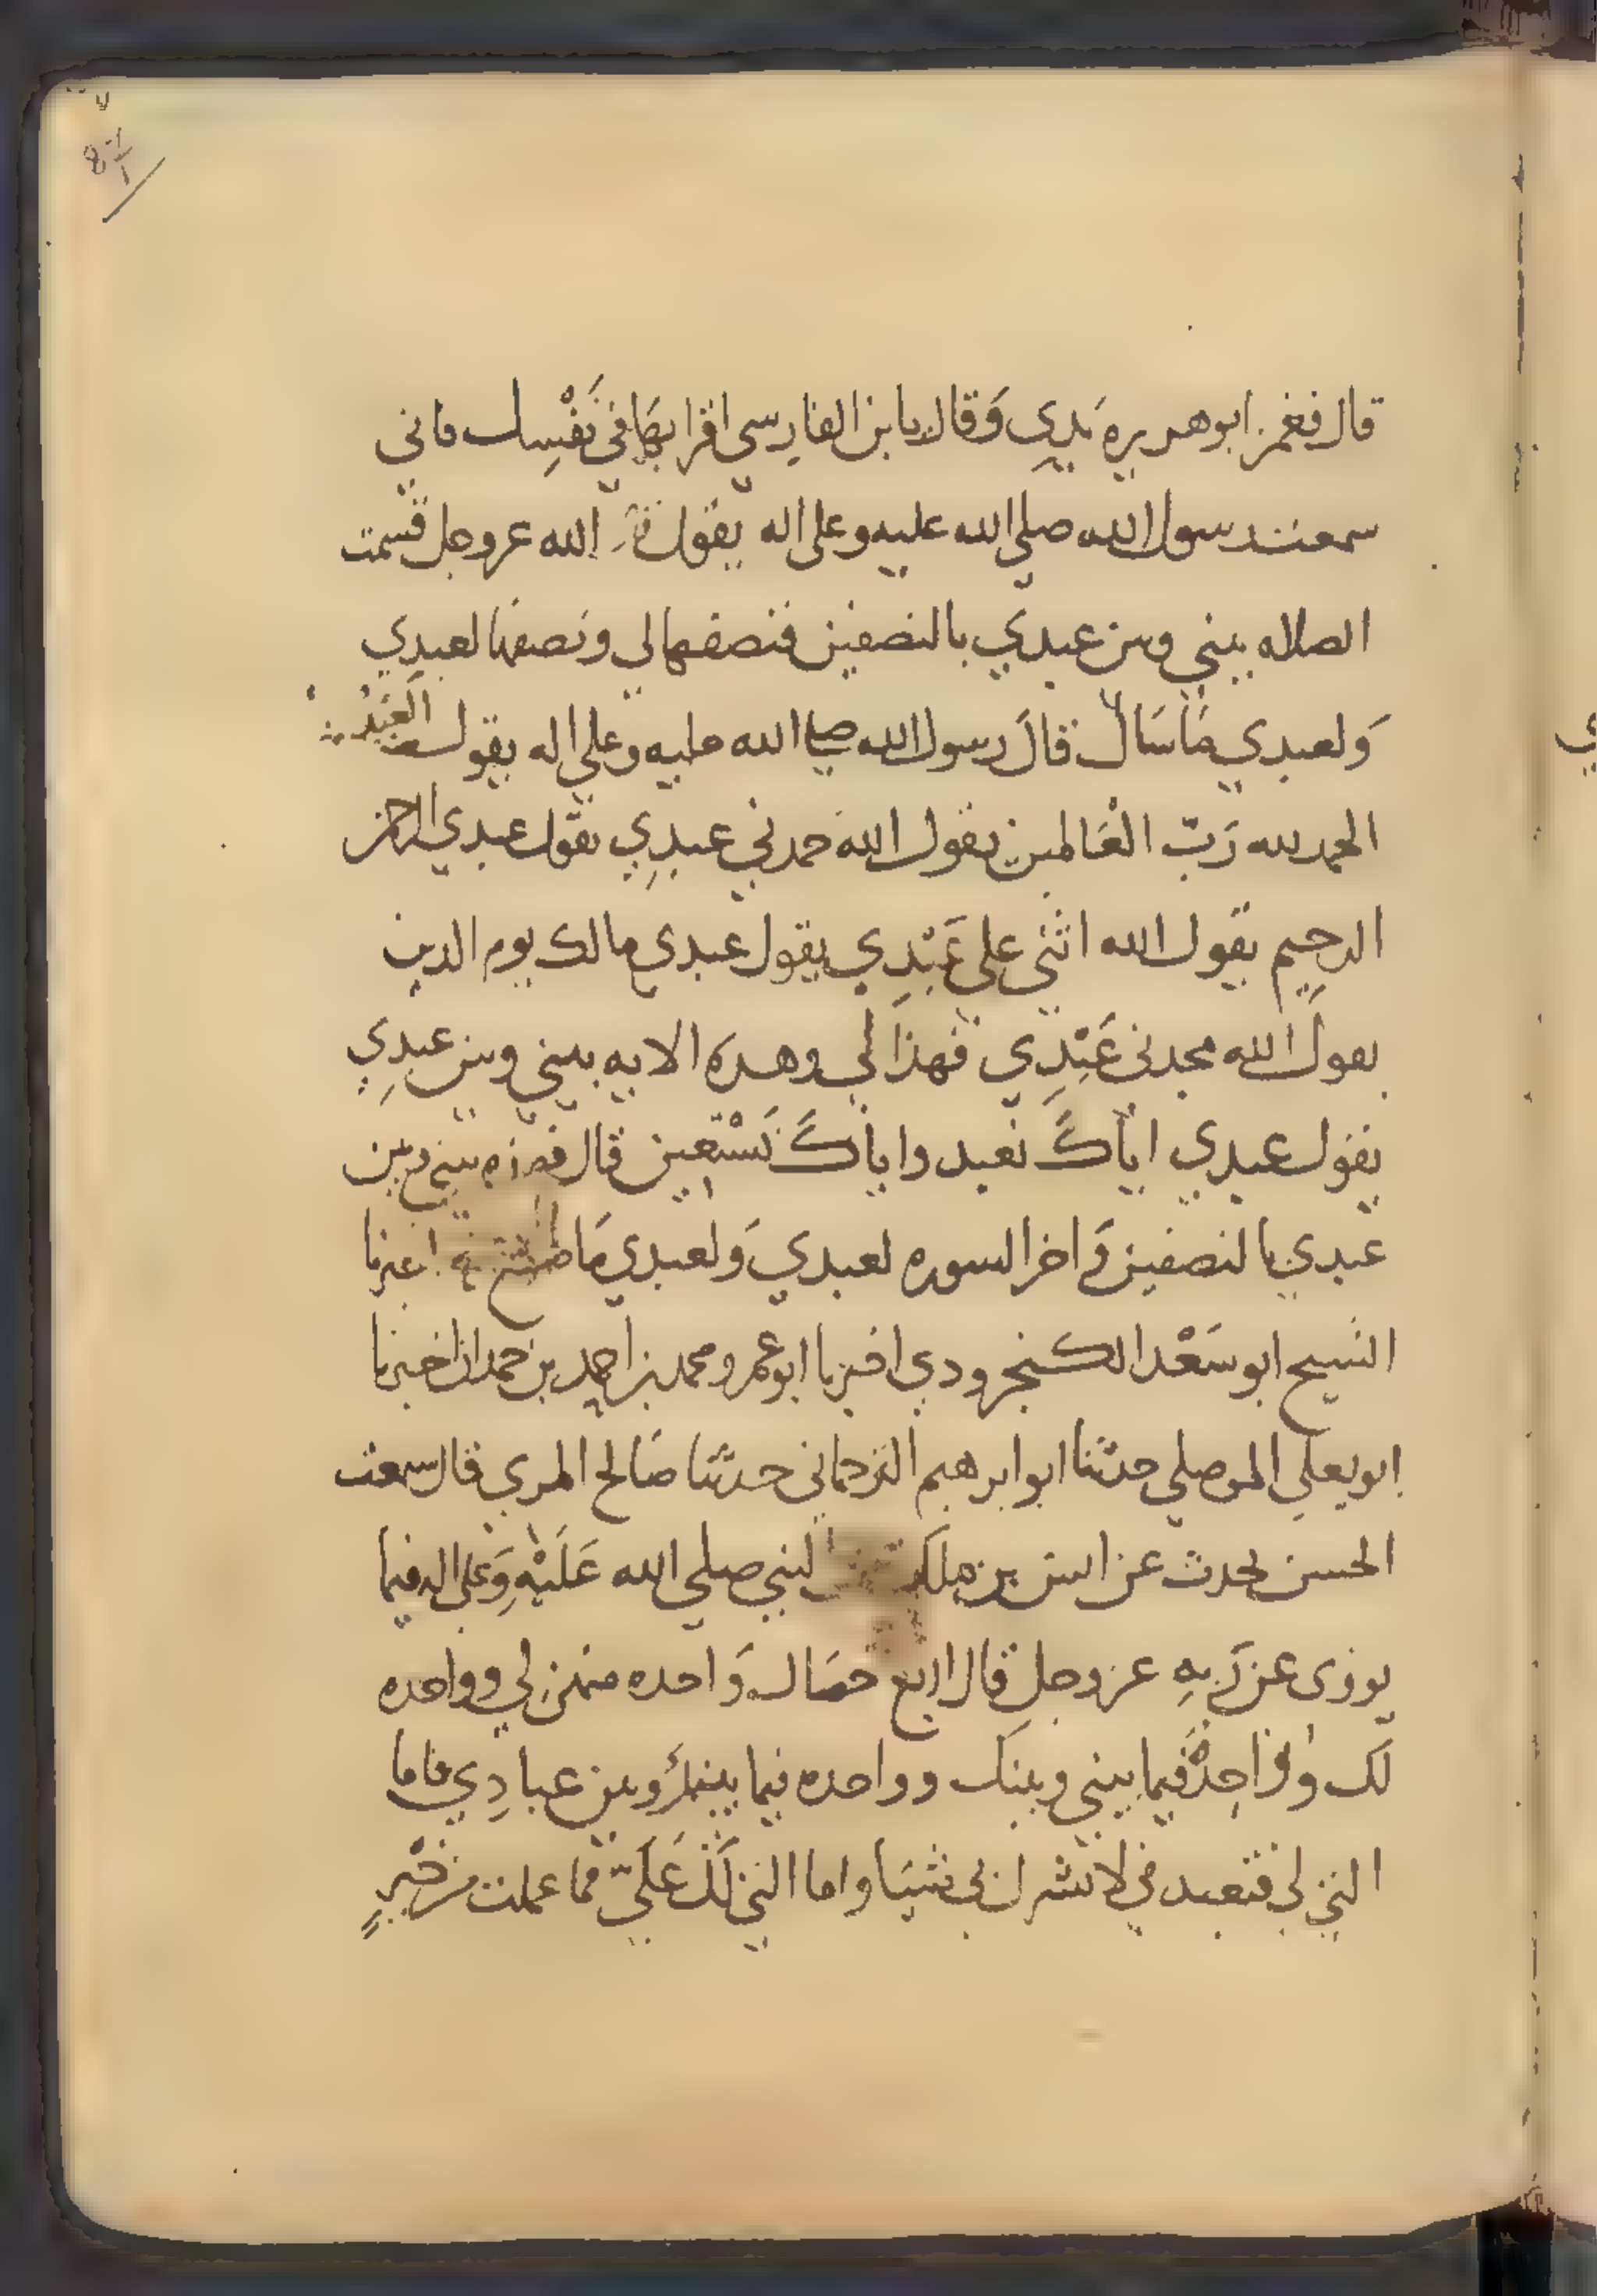 قال فغمز ابو هريره يدي وقال يا بن الفارسي اقرا بها في نفسك فاني
سمعت رسول الله صلى الله عليه وعلى اله يقول قال الله عز وجل قسمت
الصلاه بيني وبين عبدي بالنصفين فنصفها لي ونصفها لعبدي
ولعبدي ما سال قال رسول الله صلى الله عليه وعلى اله يقول العبد
الحمد لله رب العالمين يقول الله حمدني عبدي يقول عبدي الرحمن
الرحيم يقول الله اثنى علي عبدي يقول عبدي مالك يوم الدين
يقول الله مجدني عبدي فهذا لي وهذه الايه بيني وبين عبدي
يقول عبدي اياك نعبد واياك نستعين قال فهذه بيني وبين
عبدي بالنصفين واخر السوره لعبدي ولعبدي ما اخبرنا
الشيخ ابو سعد الكنجرودي اخبرنا ابو عمرو محمد بن احمد بن حمدان اخبرنا
ابو يعلي الموصلي حدثنا ابو ابرهيم الترجماني حدثنا صالح المري قال سمعت
الحسن يحدث عن انس بن ملك النبي صلى الله عليه وعلى اله فيما
يروى عن ربه عز وجل قال اربع خصال واحده منهن لي وواحده
لك وواحدة فيما بيني وبينك وواحده فيما بينك وبين عبادي فاما
التي لي فتعبدني لا تشرك بي شيئا واما التي لك علي فما عملت من خير